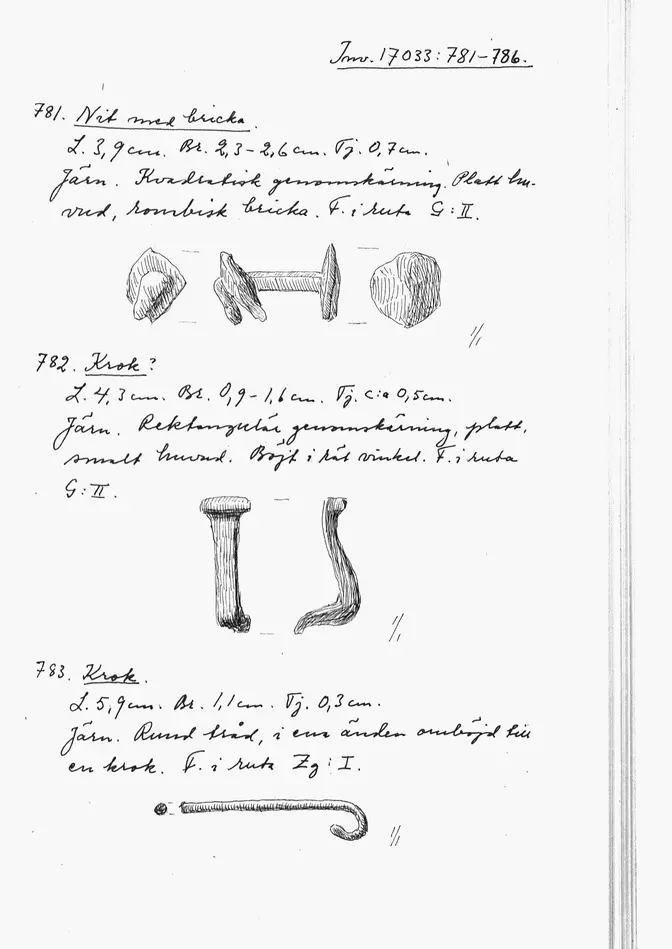 Inv. 17033:781-786.
781. Nit med bricka.
L. 3,9 cm. Br. 2,3-2,6 cm. Tj. 0,7 cm.
Järn. Kvadratisk genomskärning. Platt hu-
vud, rombisk bricka. F. i ruta G:II.
1/1
782. Krok?
L. 4,3 cm. Br. 0,9-1,6 cm. Tj. c:a 0,5 cm.
Järn. Rektangulär genomskärning, platt,
smalt huvud. Böjt i rät vinkel. F. i ruta
G:II.
1/1
783. Krok.
L. 5,9 cm. Br. 1,1 cm. Tj. 0,3 cm.
Järn. Rund tråd, i ena änden omböjd till
en krok. F. i ruta Zg:I.
1/1